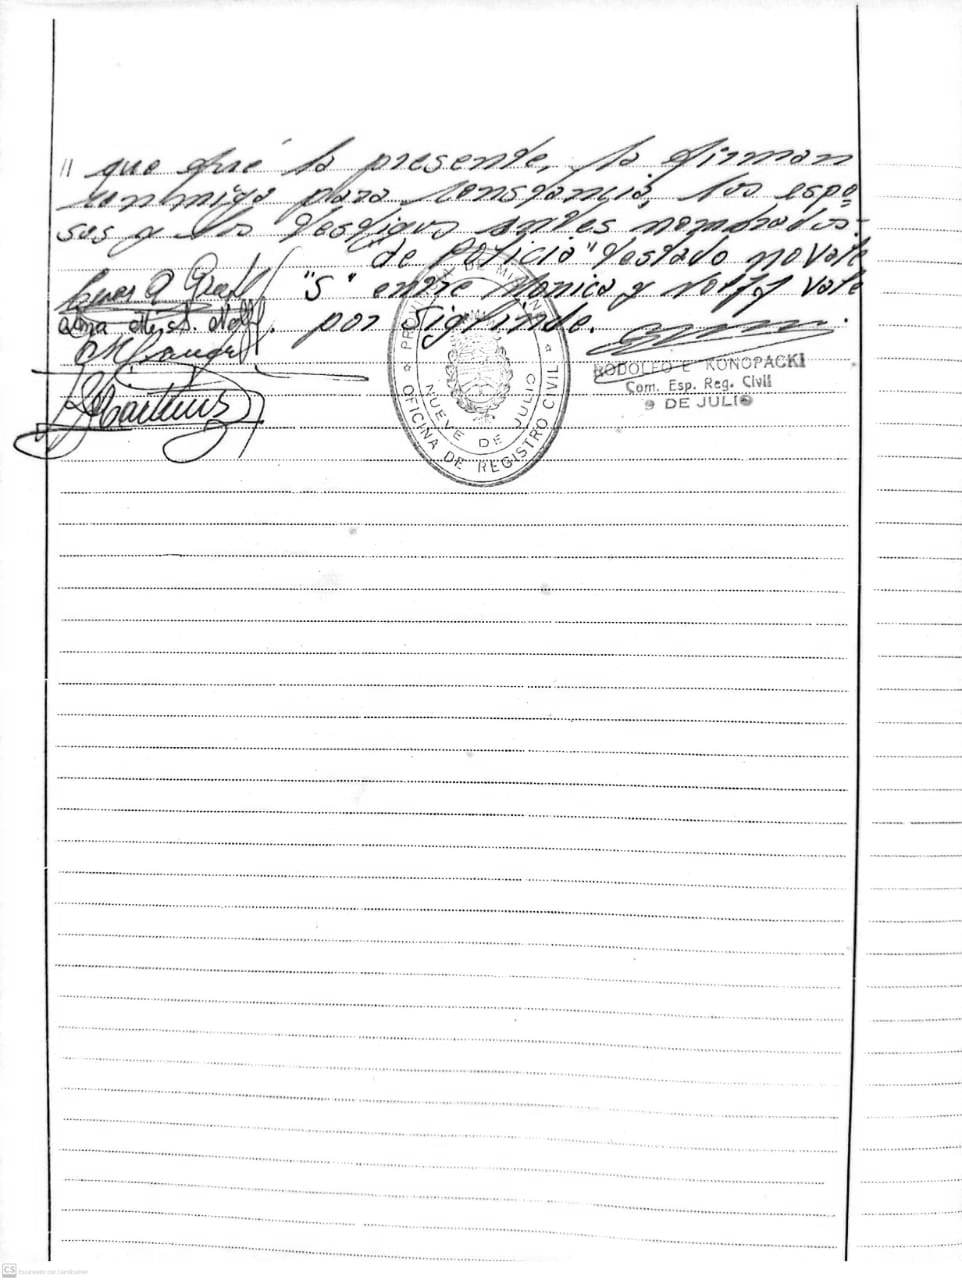 // que fué la presente, la firman
conmigo para constancia, los espo=
sos y los testigos antes nombrados.-
"de policia" testado no vale
"S" entre Monica y Nolff vale
por Siglinde.
PROVINCIA DE MISIONES
NUEVE DE JULIO
OFICINA DE REGISTRO CIVIL
RODOLFO E KONOPACKI
Com. Esp. Reg. Civil
9 DE JULIO
CS Escaneado con CamScanner